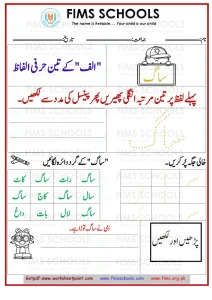 FIMS SCHOOLS
The name is Reliable.... Your child is our child
نام: جماعت: تاریخ:
"الف" کے تین حرفی الفاظ
ساگ
پہلے لفظ پر تین مرتبہ انگلی پھیریں پھر پینسل کی مدد سے لکھیں۔
ساگ
"ساگ" کے گرد دائرہ لگائیں
خالی جگہ پُر کریں۔
ساگ رات ساگ کاٹ
سال ساگ کاج ساگ
ساگ لال بات داغ
پڑھیں اور لکھیں
Getpdf www.worksheetpoint.com www.fimsschools.com www.fims.org.pk